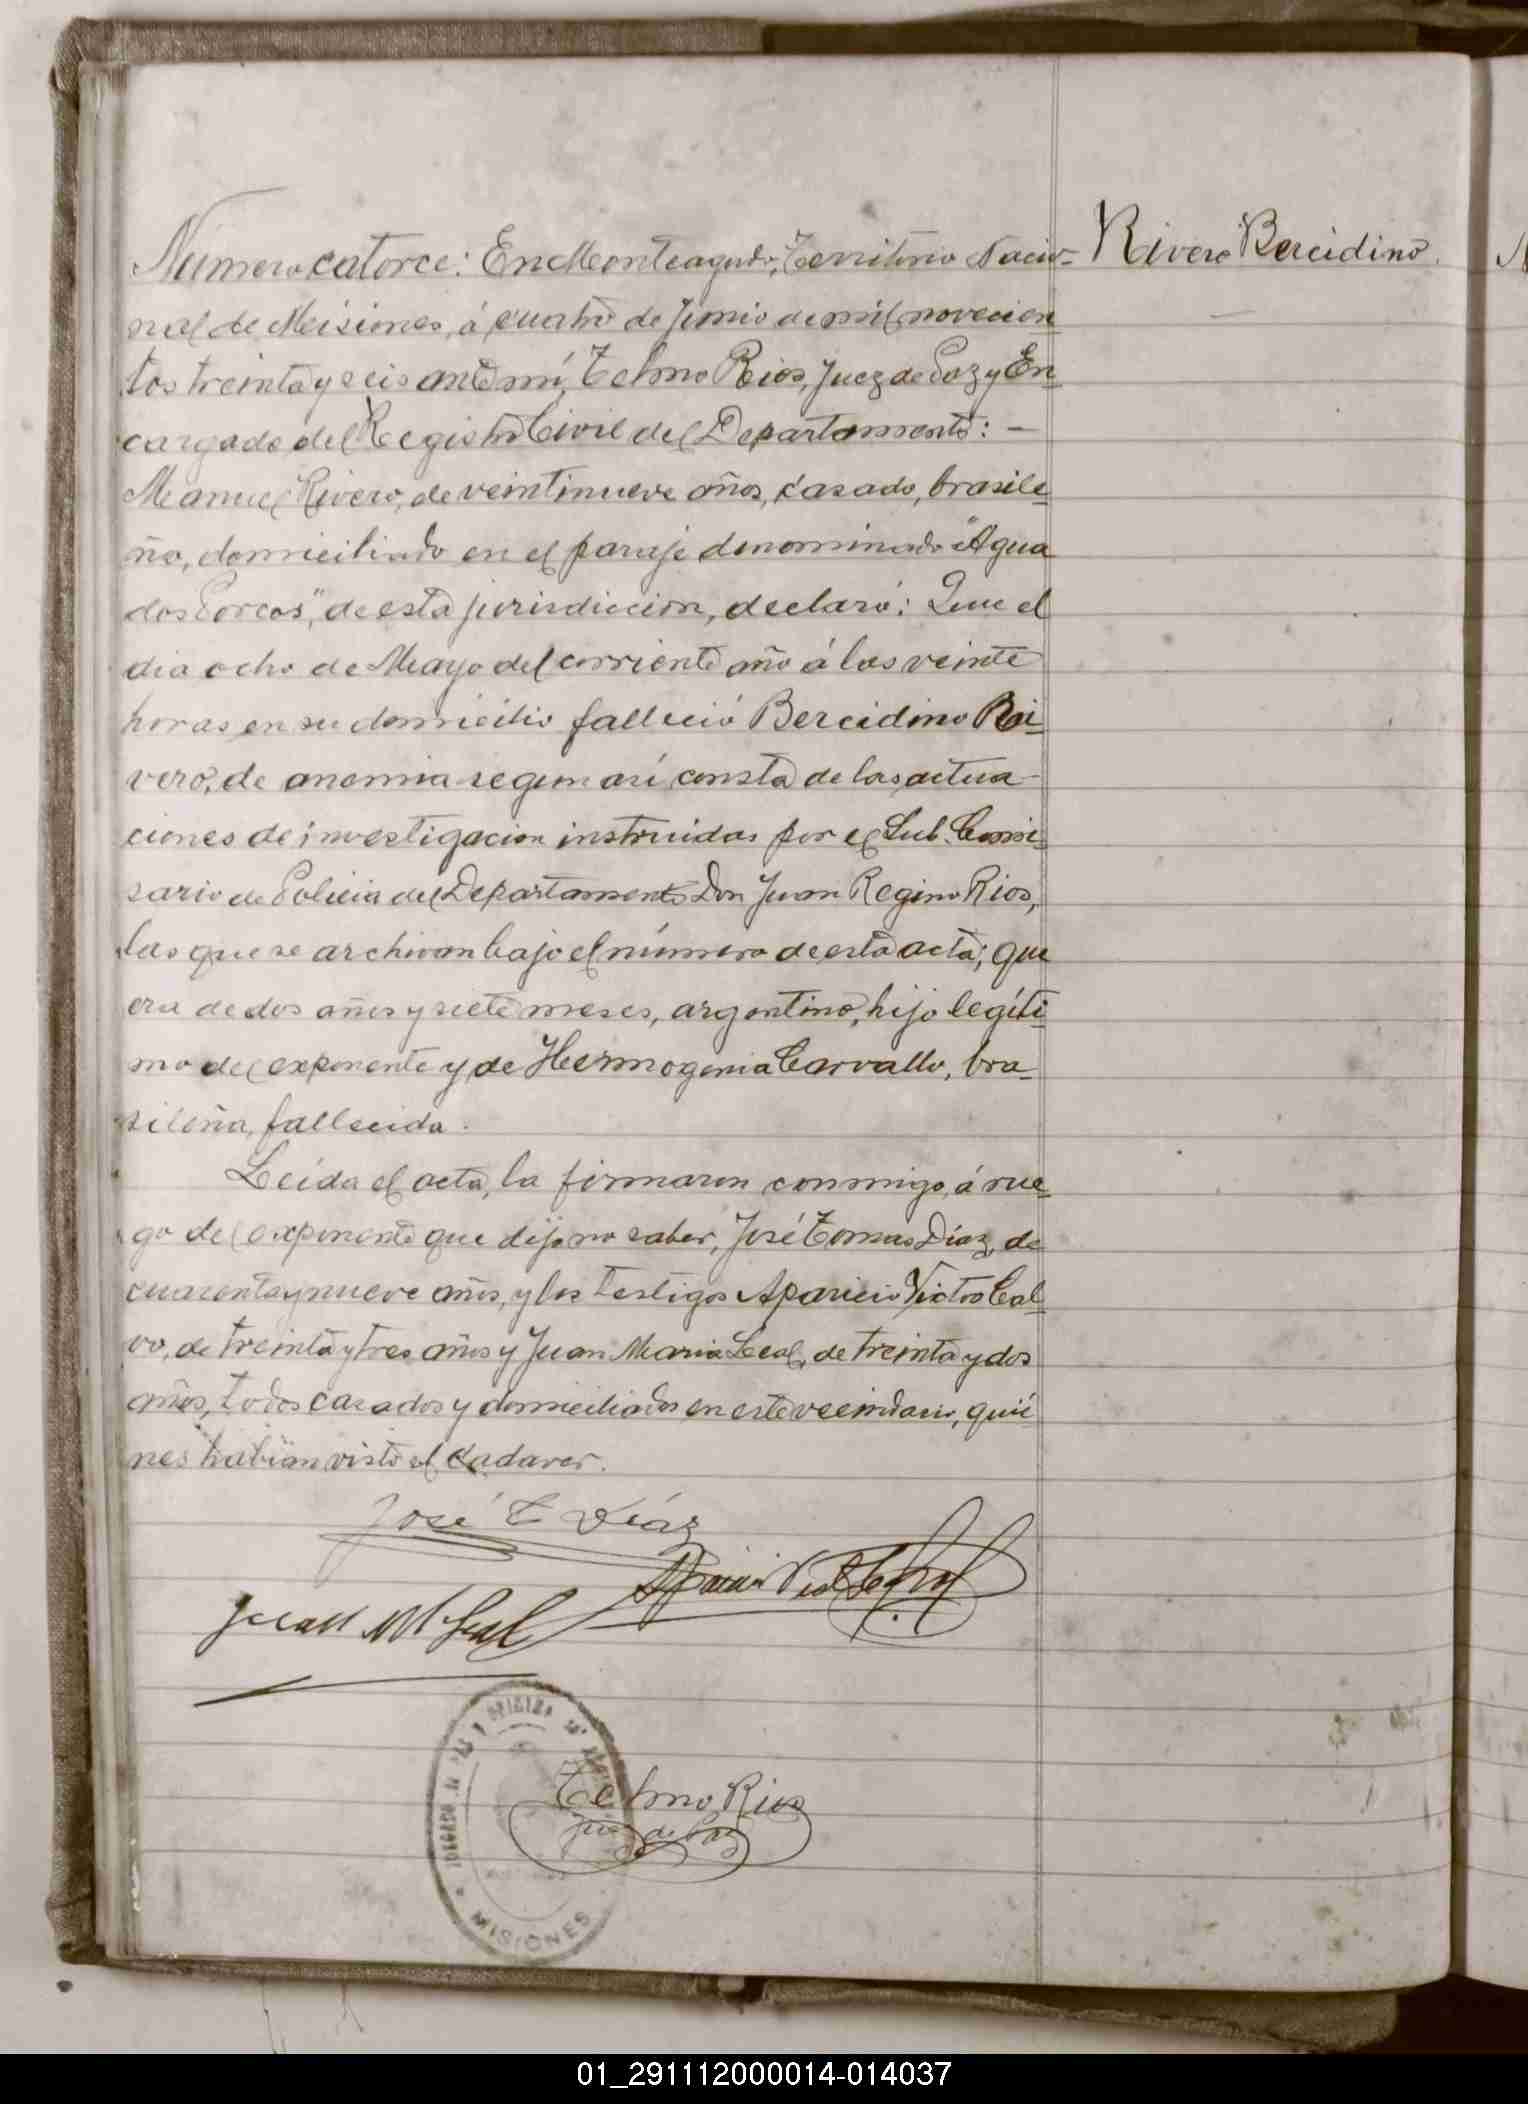 Número catorce: En Monteagudo, Territorio Nacio-
nal de Misiones, á cuatro de Junio de mil novecien
tos treinta y seis ante mí, Telmo Rios, Juez de Paz y En-
cargado del Registro Civil del Departamento: —
Manuel Rivero, de veintinueve años, casado, brasile-
ño, domiciliado en el paraje denominado "Agua
dos Porcos", de esta jurisdiccion, declaró: Que el
dia ocho de Mayo del corriente año á las veinte
horas en su domicilio falleció Bercidino Ri-
vero, de anemia segun así consta de las actua-
ciones de investigacion instruidas por el Sub. Comi-
sario de Policia del Departamento Don Juan Regino Rios,
las que se archivan bajo el número de esta acta; que
era de dos años y siete meses, argentino, hijo legíti-
mo del exponente y de Hermogenia Carvallo, bra-
sileña, fallecida.
Leída el acta, la firmaron conmigo, á rue-
go del exponente que dijo no saber, José Tomas Díaz, de
cuarenta y nueve años, y los testigos Aparicio Victor Cal-
vo, de treinta y tres años y Juan Maria Leal, de treinta y dos
años, todos casados y domiciliados en este vecindario, quié-
nes habian visto el cadaver.
Rivero Bercidino.
José T Díaz
Aparicio Vict Calvo
Juan M Leal
Telmo Rios
Juez de Paz
MISIONES
01_291112000014-014037